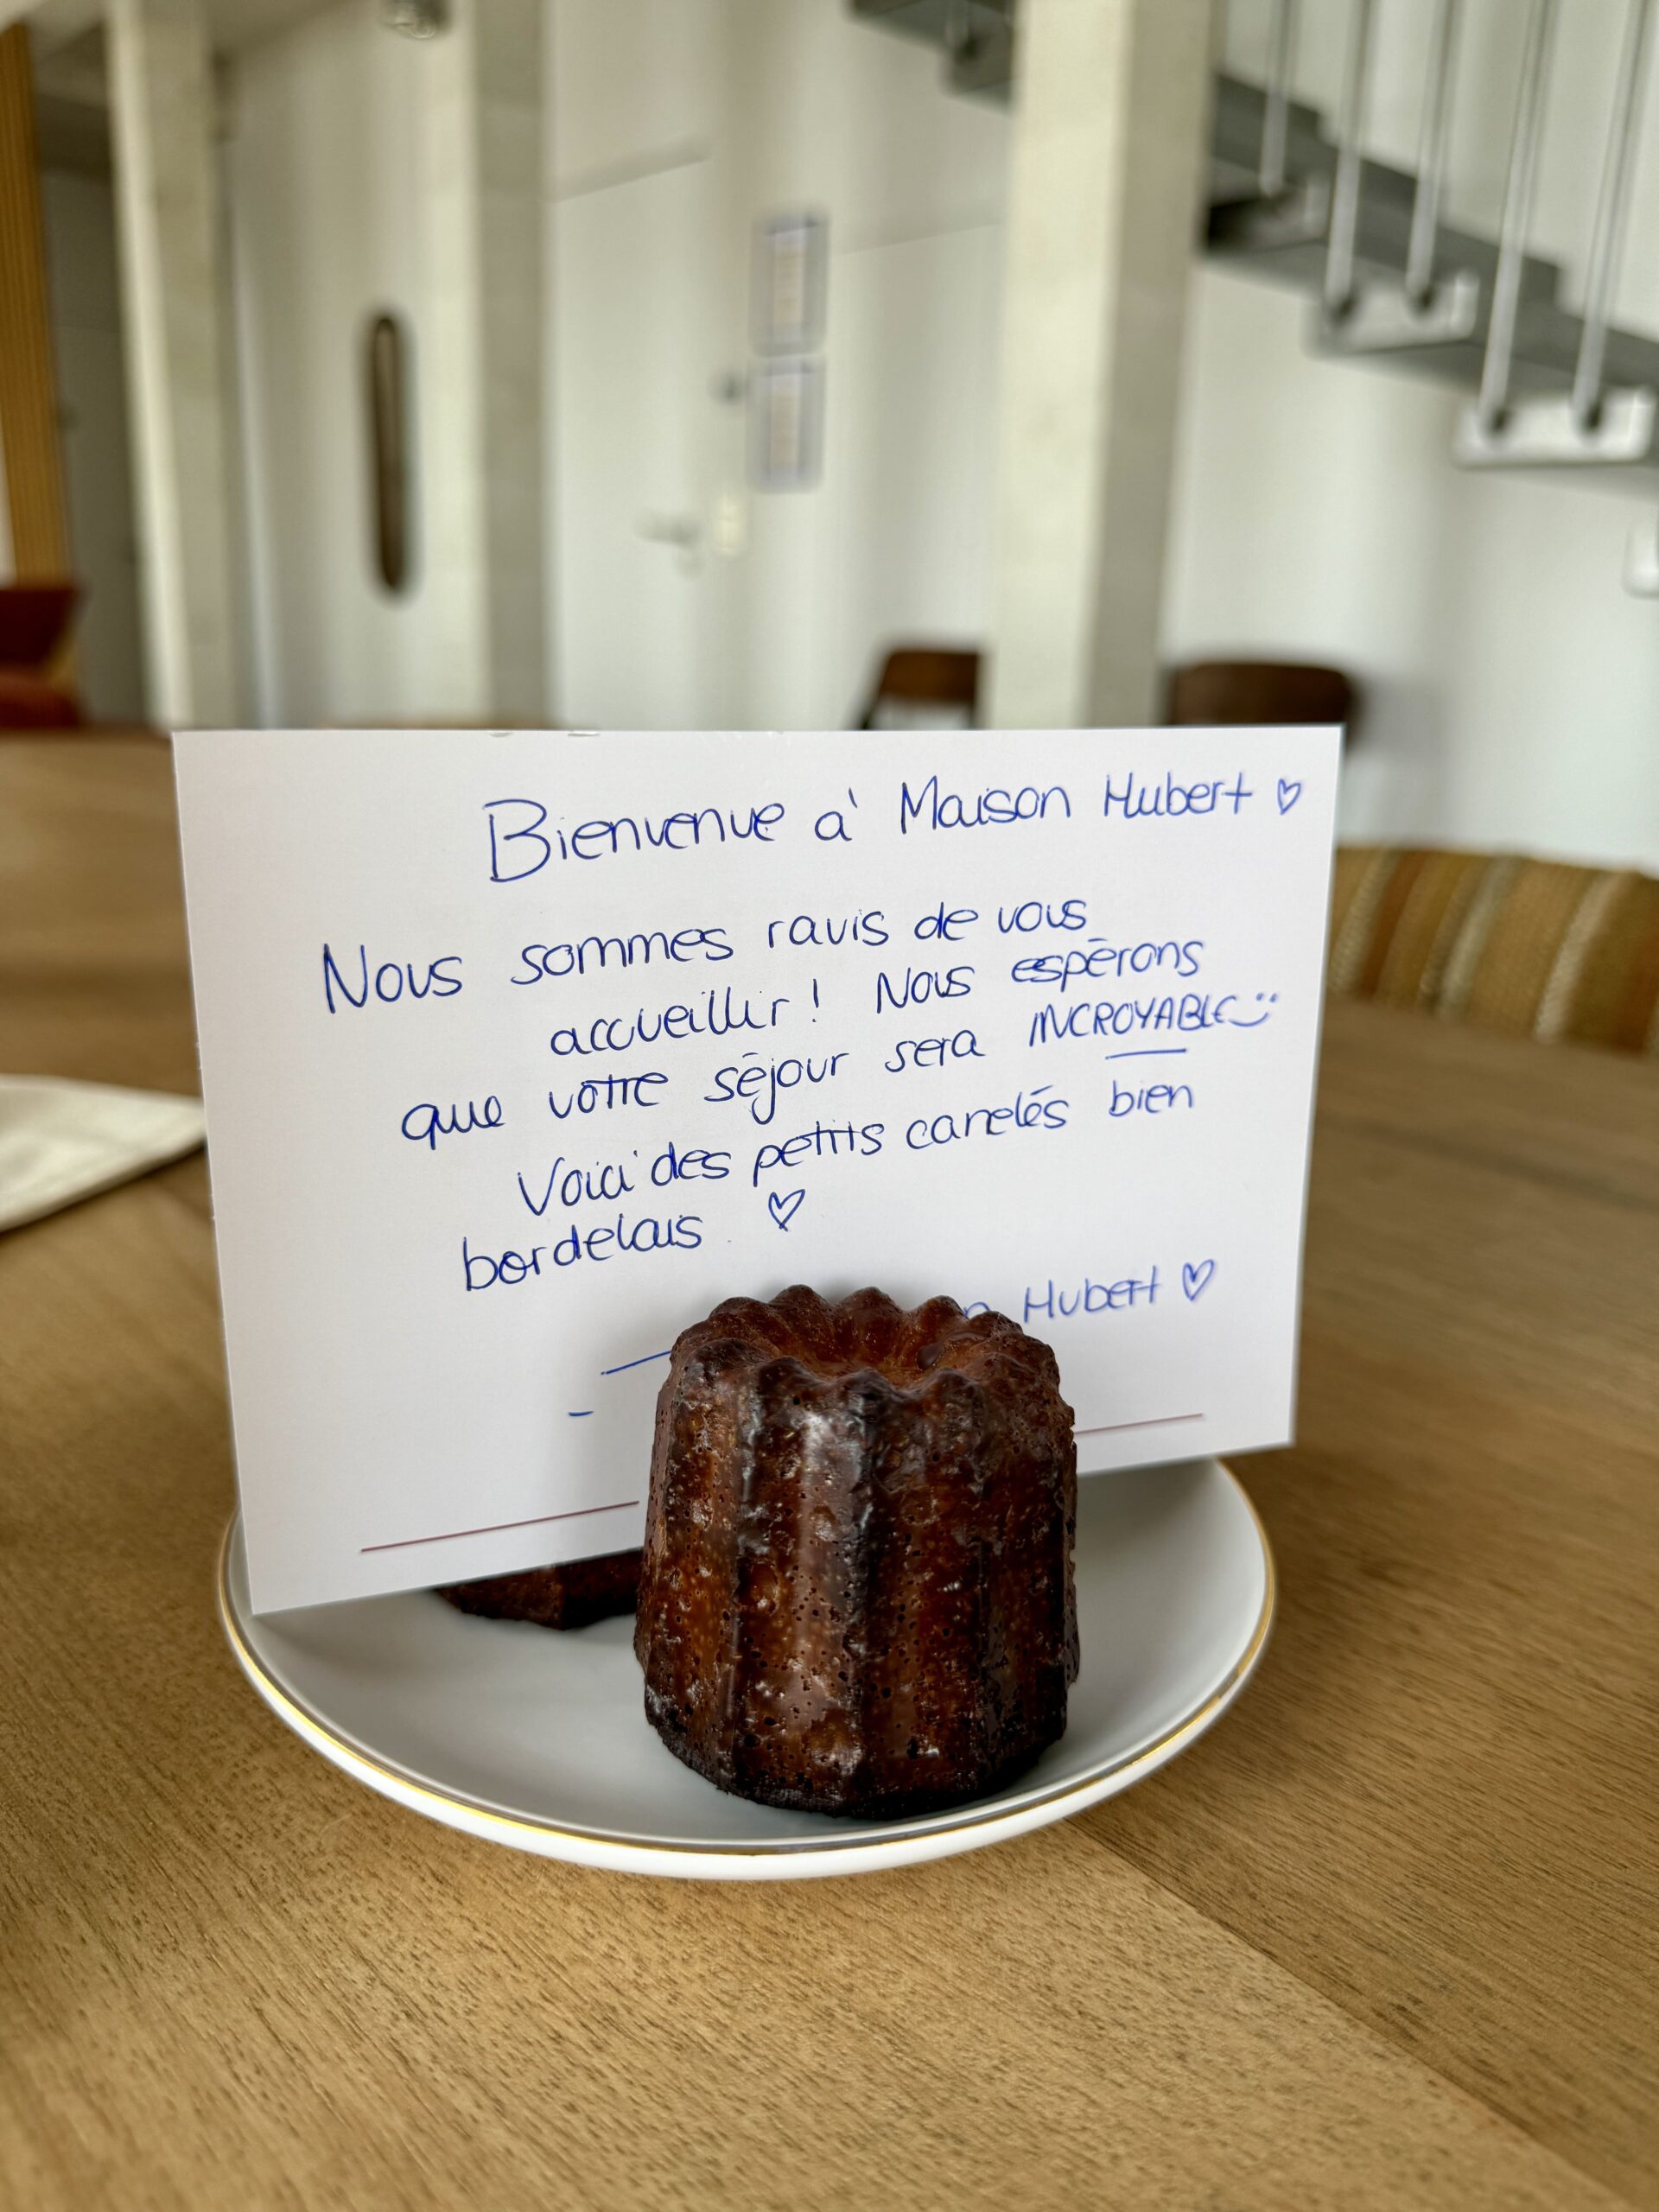 Bienvenue à Maison Hubert ♡
Nous sommes ravis de vous
accueillir ! Nous espérons
que votre séjour sera INCROYABLE
Voici des petits canelés bien
bordelais ♡
Hubert ♡